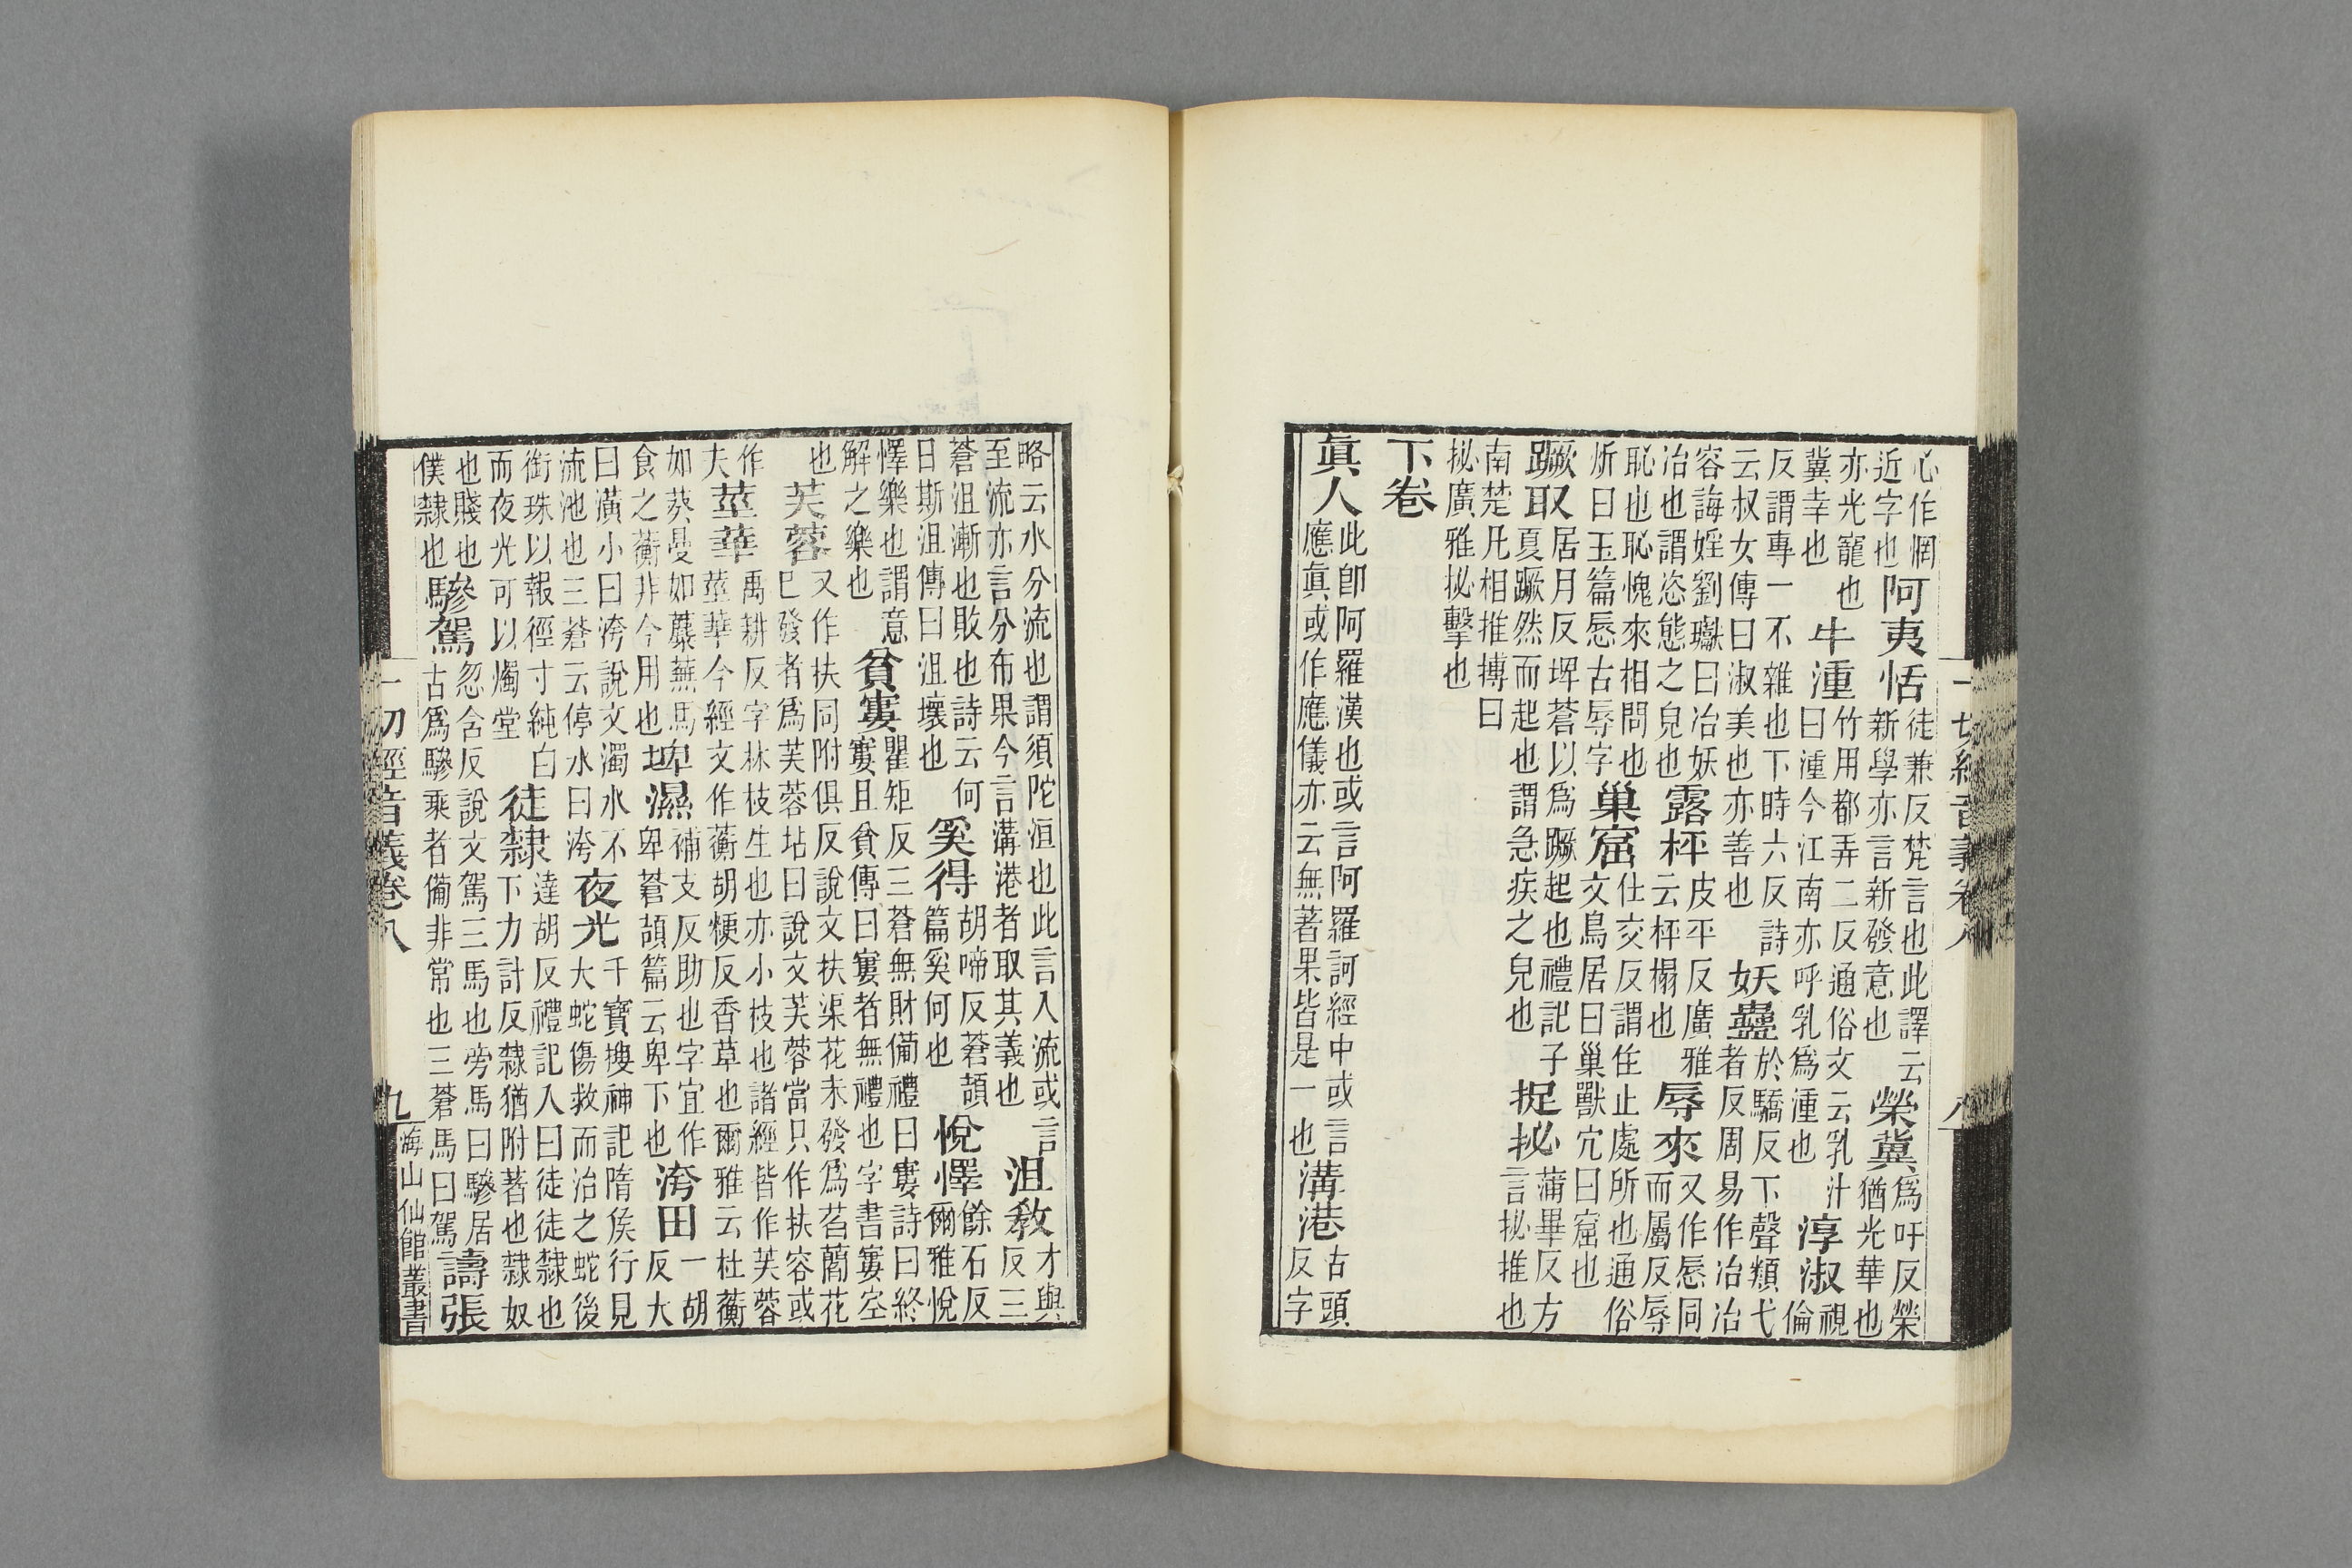 一切經音義卷八
八
心作惘
近字也
阿夷恬
徒兼反梵言也此譯云
新學亦言新發意也
榮冀
爲吁反榮
猶光華也
亦光寵也
冀幸也
牛湩
竹用都弄二反通俗文云乳汁
曰湩今江南亦呼乳爲湩也
淳淑
視
倫
反謂專一不雜也下時六反詩
云叔女傳曰淑美也亦善也
妖蠱
於驕反下聲類弋
者反周易作冶冶
容誨婬劉瓛曰冶妖
冶也謂恣態之皃也
露枰
皮平反廣雅
云枰榻也
辱來
又作㥏同
而屬反辱
恥也恥愧來相問也
炘曰玉篇㥏古辱字
巢窟
仕交反謂住止處所也通俗
文鳥居曰巢獸穴曰窟也
蹶取
居月反埤蒼以爲蹶起也禮記子
夏蹶然而起也謂急疾之皃也
捉㧙
蒲畢反方
言㧙推也
南楚凡相推搏曰
㧙廣雅㧙擊也
下卷
眞人
此卽阿羅漢也或言阿羅訶經中或言
應眞或作應儀亦云無著果皆是一也
溝港
古頭
反字
略云水分流也謂須陀洹也此言入流或言
至流亦言分布果今言溝港者取其義也
沮敎
才與
反三
蒼沮漸也敗也詩云何
日斯沮傳曰沮壞也
奚得
胡啼反蒼頡
篇奚何也
悅懌
餘石反
爾雅悅
懌樂也謂意
解之樂也
貧寠
瞿矩反三蒼無財備禮曰寠詩曰終
寠且貧傳曰寠者無禮也字書寠空
也
芙蓉
又作扶同附俱反說文扶渠花未發爲花
巳發者爲芙蓉坫曰說文芙蓉當只作扶容或
作
夫
莖華
禹耕反字林枝生也亦小枝也諸經皆作芙蓉
莖華今經文作蘅胡梗反香草也爾雅云杜蘅
如葵曼如蘪蕪馬
食之蘅非今用也
埤濕
補支反助也字宜作
卑蒼頡篇云卑下也
洿田
一胡
反大
曰潢小曰洿說文濁水不
流池也三蒼云停水曰洿
夜光
千寶搜神記隋侯行見
大蛇傷救而治之蛇後
銜珠以報徑寸純白
而夜光可以燭堂
徒隸
達胡反禮記入曰徒徒隸也
下力計反隸猶附著也隸奴
也賤也
僕隸也
驂駕
忽含反說文駕三馬也旁馬曰驂居
古爲驂乘者備非常也三蒼馬曰駕
譸張
一切經音義卷八
九
海山仙館叢書